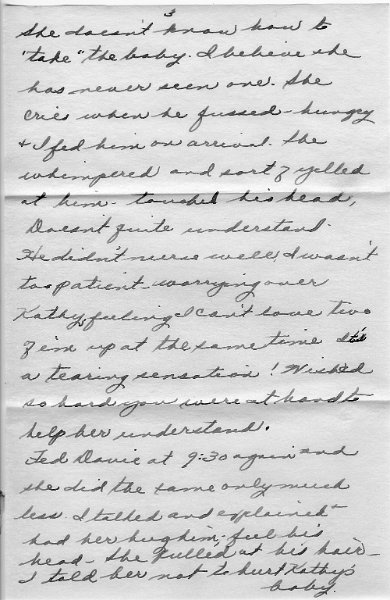 3
She doesn't know how to
"take" the baby. I believe she
has never seen one. She
cries when he fussed - hungry
+ I fed him on arrival. She
whimpered and sort of yelled
at him - touched his head,
Doesn't quite understand.
He didn't nurse well, I wasn't
too patient - worrying over
Kathy, feeling I can't love two
of em up at the same time It's
a tearing sensation! Wished
so hard you were at hand to
help her understand.
Fed Davie at 9:30 again and
she did the same only much
less. I talked and explained +
had her hug him; feel his
head - She pulled at his hair -
I told her not to hurt Kathy's
baby.